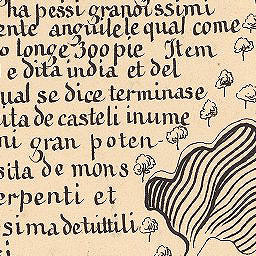 ha pessi grandissimi
ente anguile le qual come
o longe 300 pie Item
e dita india et del
ual se dice terminase
uta de casteli in ume
ni gran poten-
sita de mons
erpenti et
sima de tutti li